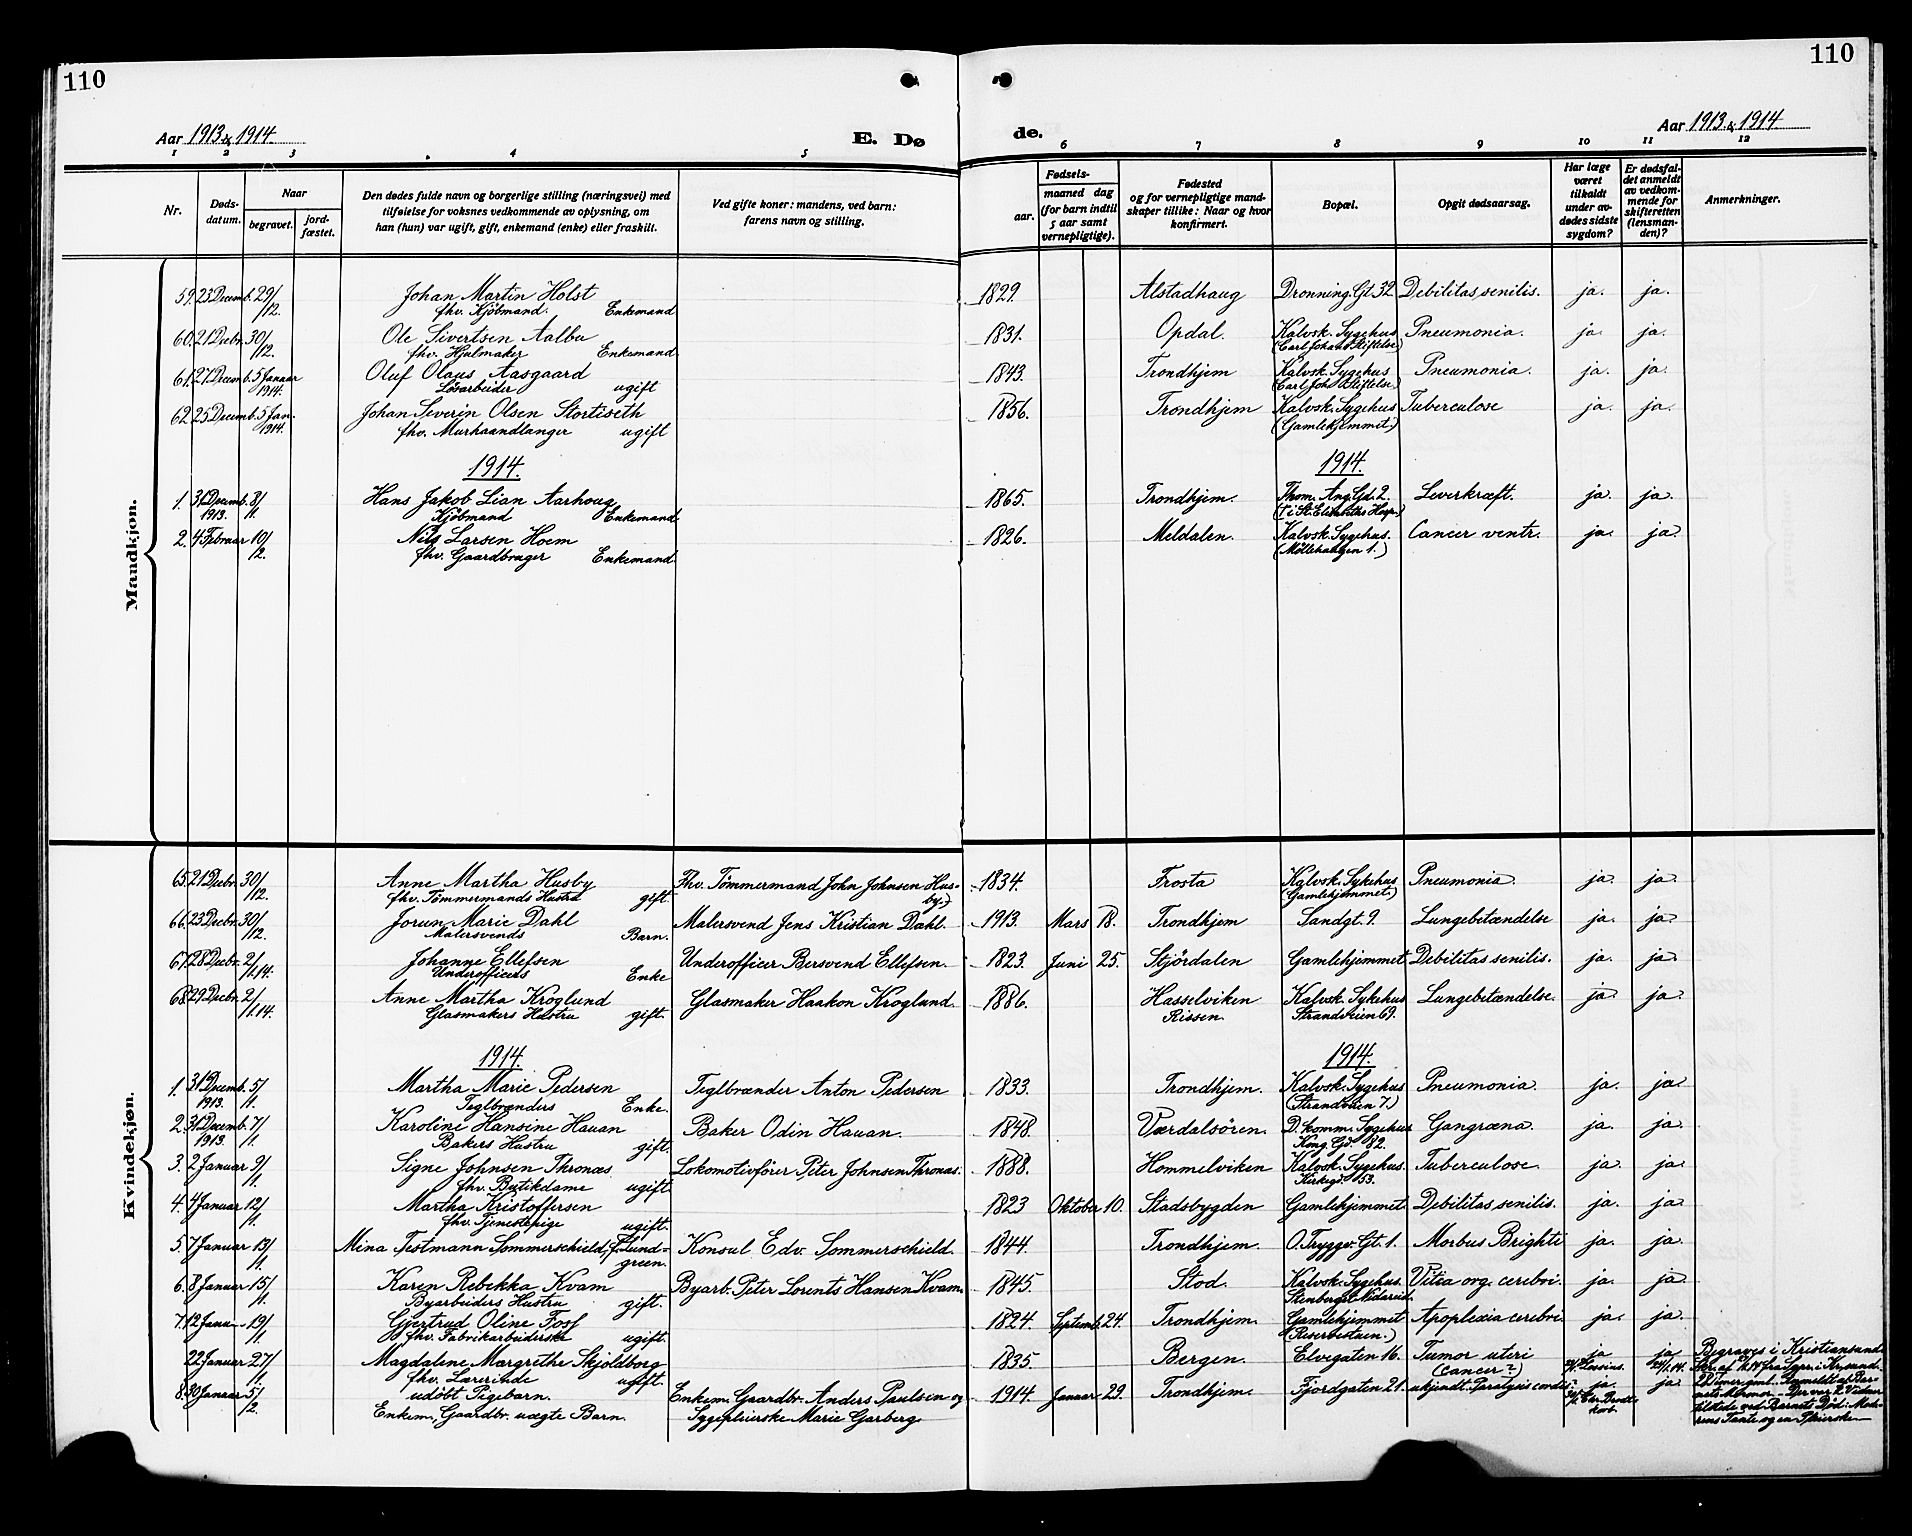 110
110
Aar 1913 & 1914.
E. Dø
de.
Aar 1913 & 1914
1 2 3 4 5 6 7 8 9 10 11 12
Nr.
Døds-
datum.
Naar
begravet.
jord-
fæstet.
Den dødes fulde navn og borgerlige stilling (næringsvei) med
tilføielse for voksnes vedkommende av oplysning, om
han (hun) var ugift, gift, enkemand (enke) eller fraskilt.
Ved gifte koner: mandens, ved barn:
farens navn og stilling.
Fødsels-
aar.
maaned dag
(for barn indtil
5 aar samt
vernepligtige).
Fødested
og for vernepligtige mand-
skaper tillike: Naar og hvor
konfirmert.
Bopæl.
Opgit dødsaarsag.
Har læge
været
tilkaldt
under av-
dødes sidste
sygdom?
Er dødsfal-
det anmeldt
av vedkom-
mende for
skifteretten
(lensman-
den)?
Anmerkninger.
Mandkjøn.
59. 23 Decemb. 29/12. Johan Martin Holst 1829. Alstadhaug Dronning. Gt. 32 Debilitas senilis. ja. ja.
fhv. Kjöbmand. Enkemand
60. 21 Decbr. 30/12. Ole Sivertsen Aalbu 1831. Opdal. Kalvsk. Sygehus Pneumonia. ja. ja.
fhv. Hjulmaker Enkemand. (Carl Johans Stiftelse)
61. 27 Decemb. 5 Januar 1914. Oluf Olaus Aasgaard 1843. Trondhjem Kalvsk. Sygehus Pneumonia. ja. ja.
Lösarbeider ugift (Carl Joh. Stiftelse.)
62. 25 Decemb. 5 Jan. 1914. Johan Severin Olsen Stortiseth 1856. Trondhjem Kalvsk. Sygehus Tuberculose ja. ja.
fhv. Murhaandlanger ugift (Gamlehjemmet.)
1914. 1914.
1. 31 Decemb. 1913. 8/1. Hans Jakob Lian Aarhoug 1865. Trondhjem. Thom. Ang. Gd. 2. Leverkræft. ja. ja.
Kjöbmand Enkemand († i St. Elisabeths Hosp.)
2. 4 Februar 10/2. Nils Larsen Hoem 1826. Meldalen. Kalvsk. Sygehus. Cancer ventr. ja. ja
fhv. Gaardbruger Enkemand. (Möllebakken 1.)
Kvindekjøn.
65. 21 Decbr. 30/12. Anne Martha Husby Fhv. Tömmermand John Johnsen Hus- 1834. Frosta Kalvsk. Sykehus Pneumonia. ja. ja.
fhv. Tömmermands Hustru gift. by.) (Gamlehjemmet.)
66. 23 Decbr. 30/12. Jorun Marie Dahl Malersvend Jens Kristian Dahl. 1913. Mars 18. Trondhjem Sandgt. 9. Lungebetændelse ja. ja
Malersvends Barn.
67. 28 Decbr. 2/1.14. Johanne Ellefsen Underofficer Bersvend Ellefsen. 1823. Juni 25. Stjördalen Gamlehjemmet Debilitas senilis. ja. ja
Underofficers Enke
68. 29 Decbr. 2/1.14. Anne Martha Kroglund Glasmaker Haakon Kroglund. 1886. Hasselviken Kalvsk. Sykehus Lungebetændelse. ja. ja
Glasmakers Hustru gift. Rissen. Strandveien 69.
1914. 1914.
1. 31 Decemb. 1913. 5/1. Martha Marie Pedersen Teglbrænder Anton Pedersen 1833. Trondhjem. Kalvsk. Sygehus Pneumonia. ja. ja
Teglbrænders Enke. (Strandveien 7.)
2. 31 Decemb. 1913. 7/1. Karoline Hansine Hauan Baker Odin Hauan. 1848. Værdalsören. D. komm. Sygehus Gangræna. ja. ja
Bakers Hustru gift. Kong. Gd. 82.
3. 2 Januar 9/1. Signe Johnsen Thronæs Lokomotivförer Peter Johnsen Thronæs. 1888. Hommelviken Kalvsk. Sygehus. Tuberculose. ja. ja
fhv. Butikdame ugift. Kirkegd. 53.
4. 4 Januar 12/1. Martha Kristoffersen 1823 Oktober 10. Stadsbygden Gamlehjemmet Debilitas senilis. ja. ja
fhv. Tjenestepige ugift.
5. 7 Januar 13/1. Mina Testmann Sommerschield, f. Lund- Konsul Edv. Sommerschield. 1844. Trondhjem. O. Tryggv. Gt. 1. Morbus Brighti ja. ja.
green.
6. 8 Januar 15/1. Karen Rebekka Kvam Byarb. Peter Lorents Hansen Kvam. 1845. Stod. Kalvsk. Sygehus. Vitia org. cerebri. ja. ja
Byarbeiders Hustru gift.
7. 12 Janu. 19/1. Gjertrud Oline Foss 1824. Septemb. 24. Trondhjem. Gamlehjemmet Apoplexia cerebri ja. ja.
fhv. Fabrikarbeiderske ugift.
22 Januar 27/1. Magdalene Margrethe Skjoldborg 1835. Bergen. Elvegaten 16. Tumor uteri ja ja Begraves i Kristiansund
fhv. Lærerinde ugift. (Cancer?)
8. 30 Januar 5/2. udöbt Pigebarn. Enkem. Gaardbr. Anders Paulsen og 1914. Januar 29. Trondhjem. Fjordgaten 21. ukjendt. ja. ja
Enkem. Gaardbr. uægte Barn. Sygepleierske Marie Garberg